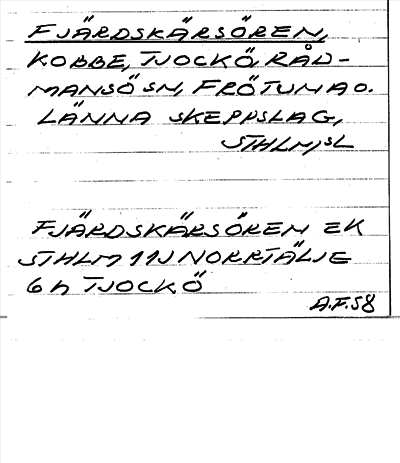 FJÄRDSKÄRSÖREN,
KOBBE, TJOCKÖ, RÅD-
MANSÖ SN, FRÖTUNA O.
LÄNNA SKEPPSLAG,
STHLM,SL
FJÄRDSKÄRSÖREN EK
STHLM 11J NORRTÄLJE
6 h TJOCKÖ
A.F.58